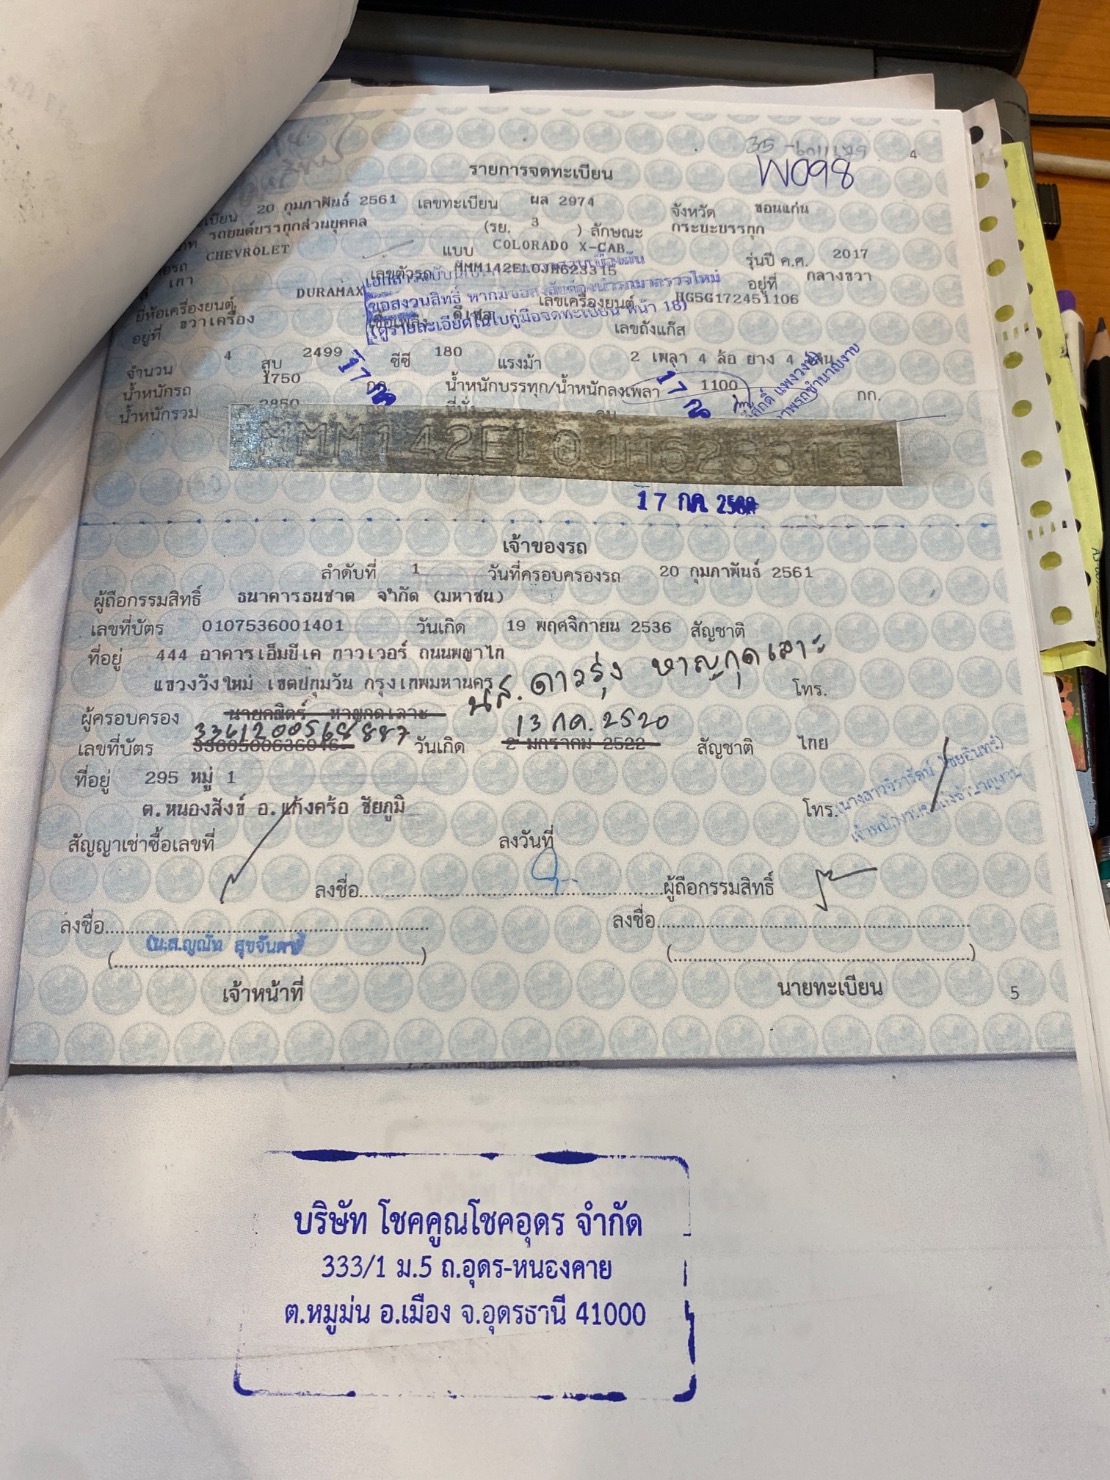 W098
4
รายการจดทะเบียน
20 กุมภาพันธ์ 2561 เลขทะเบียน ผล 2974 จังหวัด ขอนแก่น
รถยนต์บรรทุกส่วนบุคคล (รย. 3 ) ลักษณะ กระบะบรรทุก
CHEVROLET แบบ COLORADO X-CAB รุ่นปี ค.ศ. 2017
เทา เลขตัวรถ MMM142EL0JH623315 อยู่ที่ กลางขวา
ยี่ห้อเครื่องยนต์ DURAMAX เลขเครื่องยนต์ HG5G172451106
ขอสงวนสิทธิ์ หากมีข้อสงสัยต้องนำรถมาตรวจใหม่
(ดูรายละเอียดในใบคู่มือจดทะเบียน หน้า 18)
อยู่ที่ ขวาเครื่อง เชื้อเพลิง ดีเซล เลขถังแก๊ส
จำนวน 4 สูบ 2499 ซีซี 180 แรงม้า 2 เพลา 4 ล้อ ยาง 4 เส้น
น้ำหนักรถ 1750 กก. น้ำหนักบรรทุก/น้ำหนักลงเพลา 1100 กก.
น้ำหนักรวม 2850 ที่นั่ง คน
17 กค 17 กค
MMM142EL0JH623315
17 กค. 256
เจ้าของรถ
ลำดับที่ 1 วันที่ครอบครองรถ 20 กุมภาพันธ์ 2561
ผู้ถือกรรมสิทธิ์ ธนาคารธนชาต จำกัด (มหาชน)
เลขที่บัตร 0107536001401 วันเกิด 19 พฤศจิกายน 2536 สัญชาติ
ที่อยู่ 444 อาคารเอ็มบีเค ทาวเวอร์ ถนนพญาไท
แขวงวังใหม่ เขตปทุมวัน กรุงเทพมหานคร โทร.
นส. ดาวรุ่ง หาญกุดเลาะ
ผู้ครอบครอง นายคณิตร์ หาญกุดเลาะ
3361200568887 13 กค. 2520
เลขที่บัตร 3360500636046 วันเกิด 2 มกราคม 2522 สัญชาติ ไทย
ที่อยู่ 295 หมู่ 1
ต.หนองสังข์ อ.แก้งคร้อ ชัยภูมิ โทร.
สัญญาเช่าซื้อเลขที่ ลงวันที่
ลงชื่อ ผู้ถือกรรมสิทธิ์
ลงชื่อ ลงชื่อ
(น.ส.ญณัท สุขจันดาดี)
เจ้าหน้าที่ นายทะเบียน
5
บริษัท โชคคูณโชคอุดร จำกัด
333/1 ม.5 ถ.อุดร-หนองคาย
ต.หมูม่น อ.เมือง จ.อุดรธานี 41000